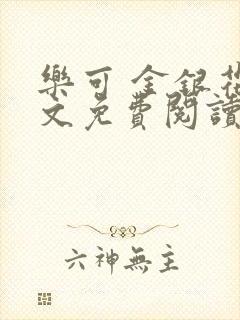 樂可 金銀花
文免費閱讀
六神無主